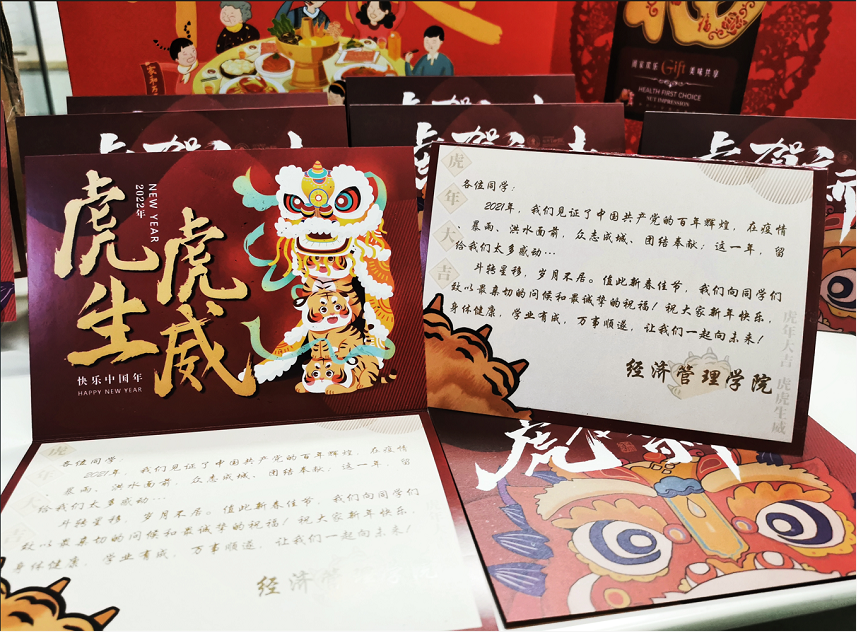 阖家欢乐 Gift 美味共享
HEALTH FIRST CHOICE
虎
生
虎
威
NEW YEAR
2022年
快乐中国年
HAPPY NEW YEAR
虎年大吉
各位同学：
2021年，我们见证了中国共产党的百年辉煌，在疫情
暴雨、洪水面前，众志成城、团结奉献；这一年，留
给我们太多感动…
斗转星移，岁月不居。值此新春佳节，我们向同学们
致以最亲切的问候和最诚挚的祝福！祝大家新年快乐，
身体健康，学业有成，万事顺遂，让我们一起向未来！
经济管理学院
虎年大吉 虎虎生威
各位同学：
2021年，我们见证了中国共产党的百年辉煌，在疫情
暴雨、洪水面前，众志成城、团结奉献；这一年，留
给我们太多感动…
斗转星移，岁月不居。值此新春佳节，我们向同学们
致以最亲切的问候和最诚挚的祝福！祝大家新年快乐，
身体健康，学业有成，万事顺遂，让我们一起向未来！
经济
虎